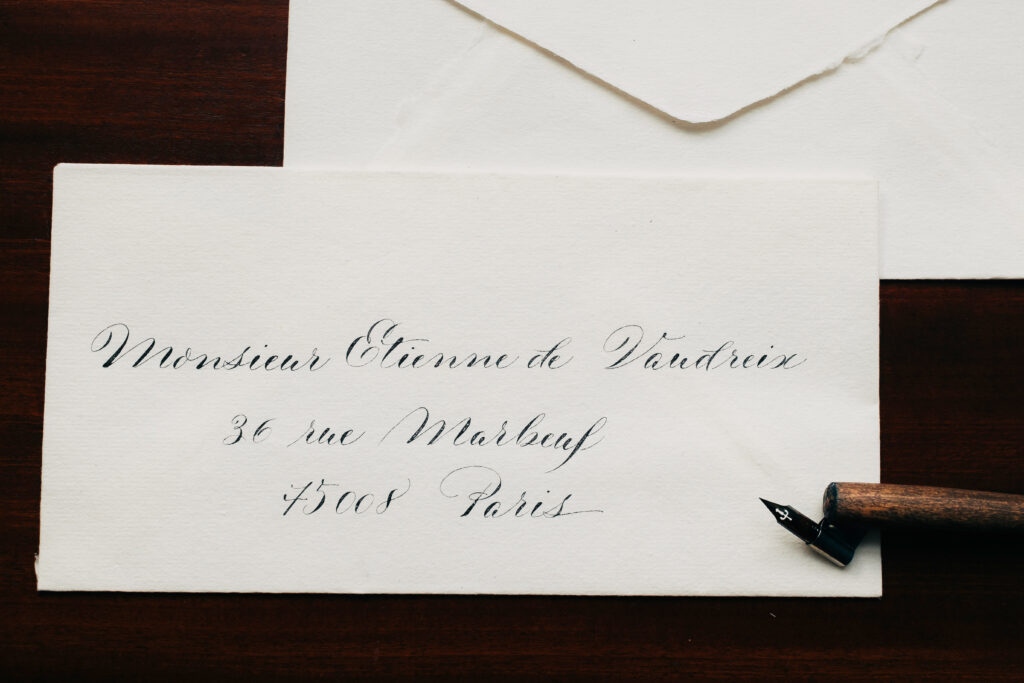 Monsieur Etienne de Vaudreix
36 rue Marbeuf
75008 Paris